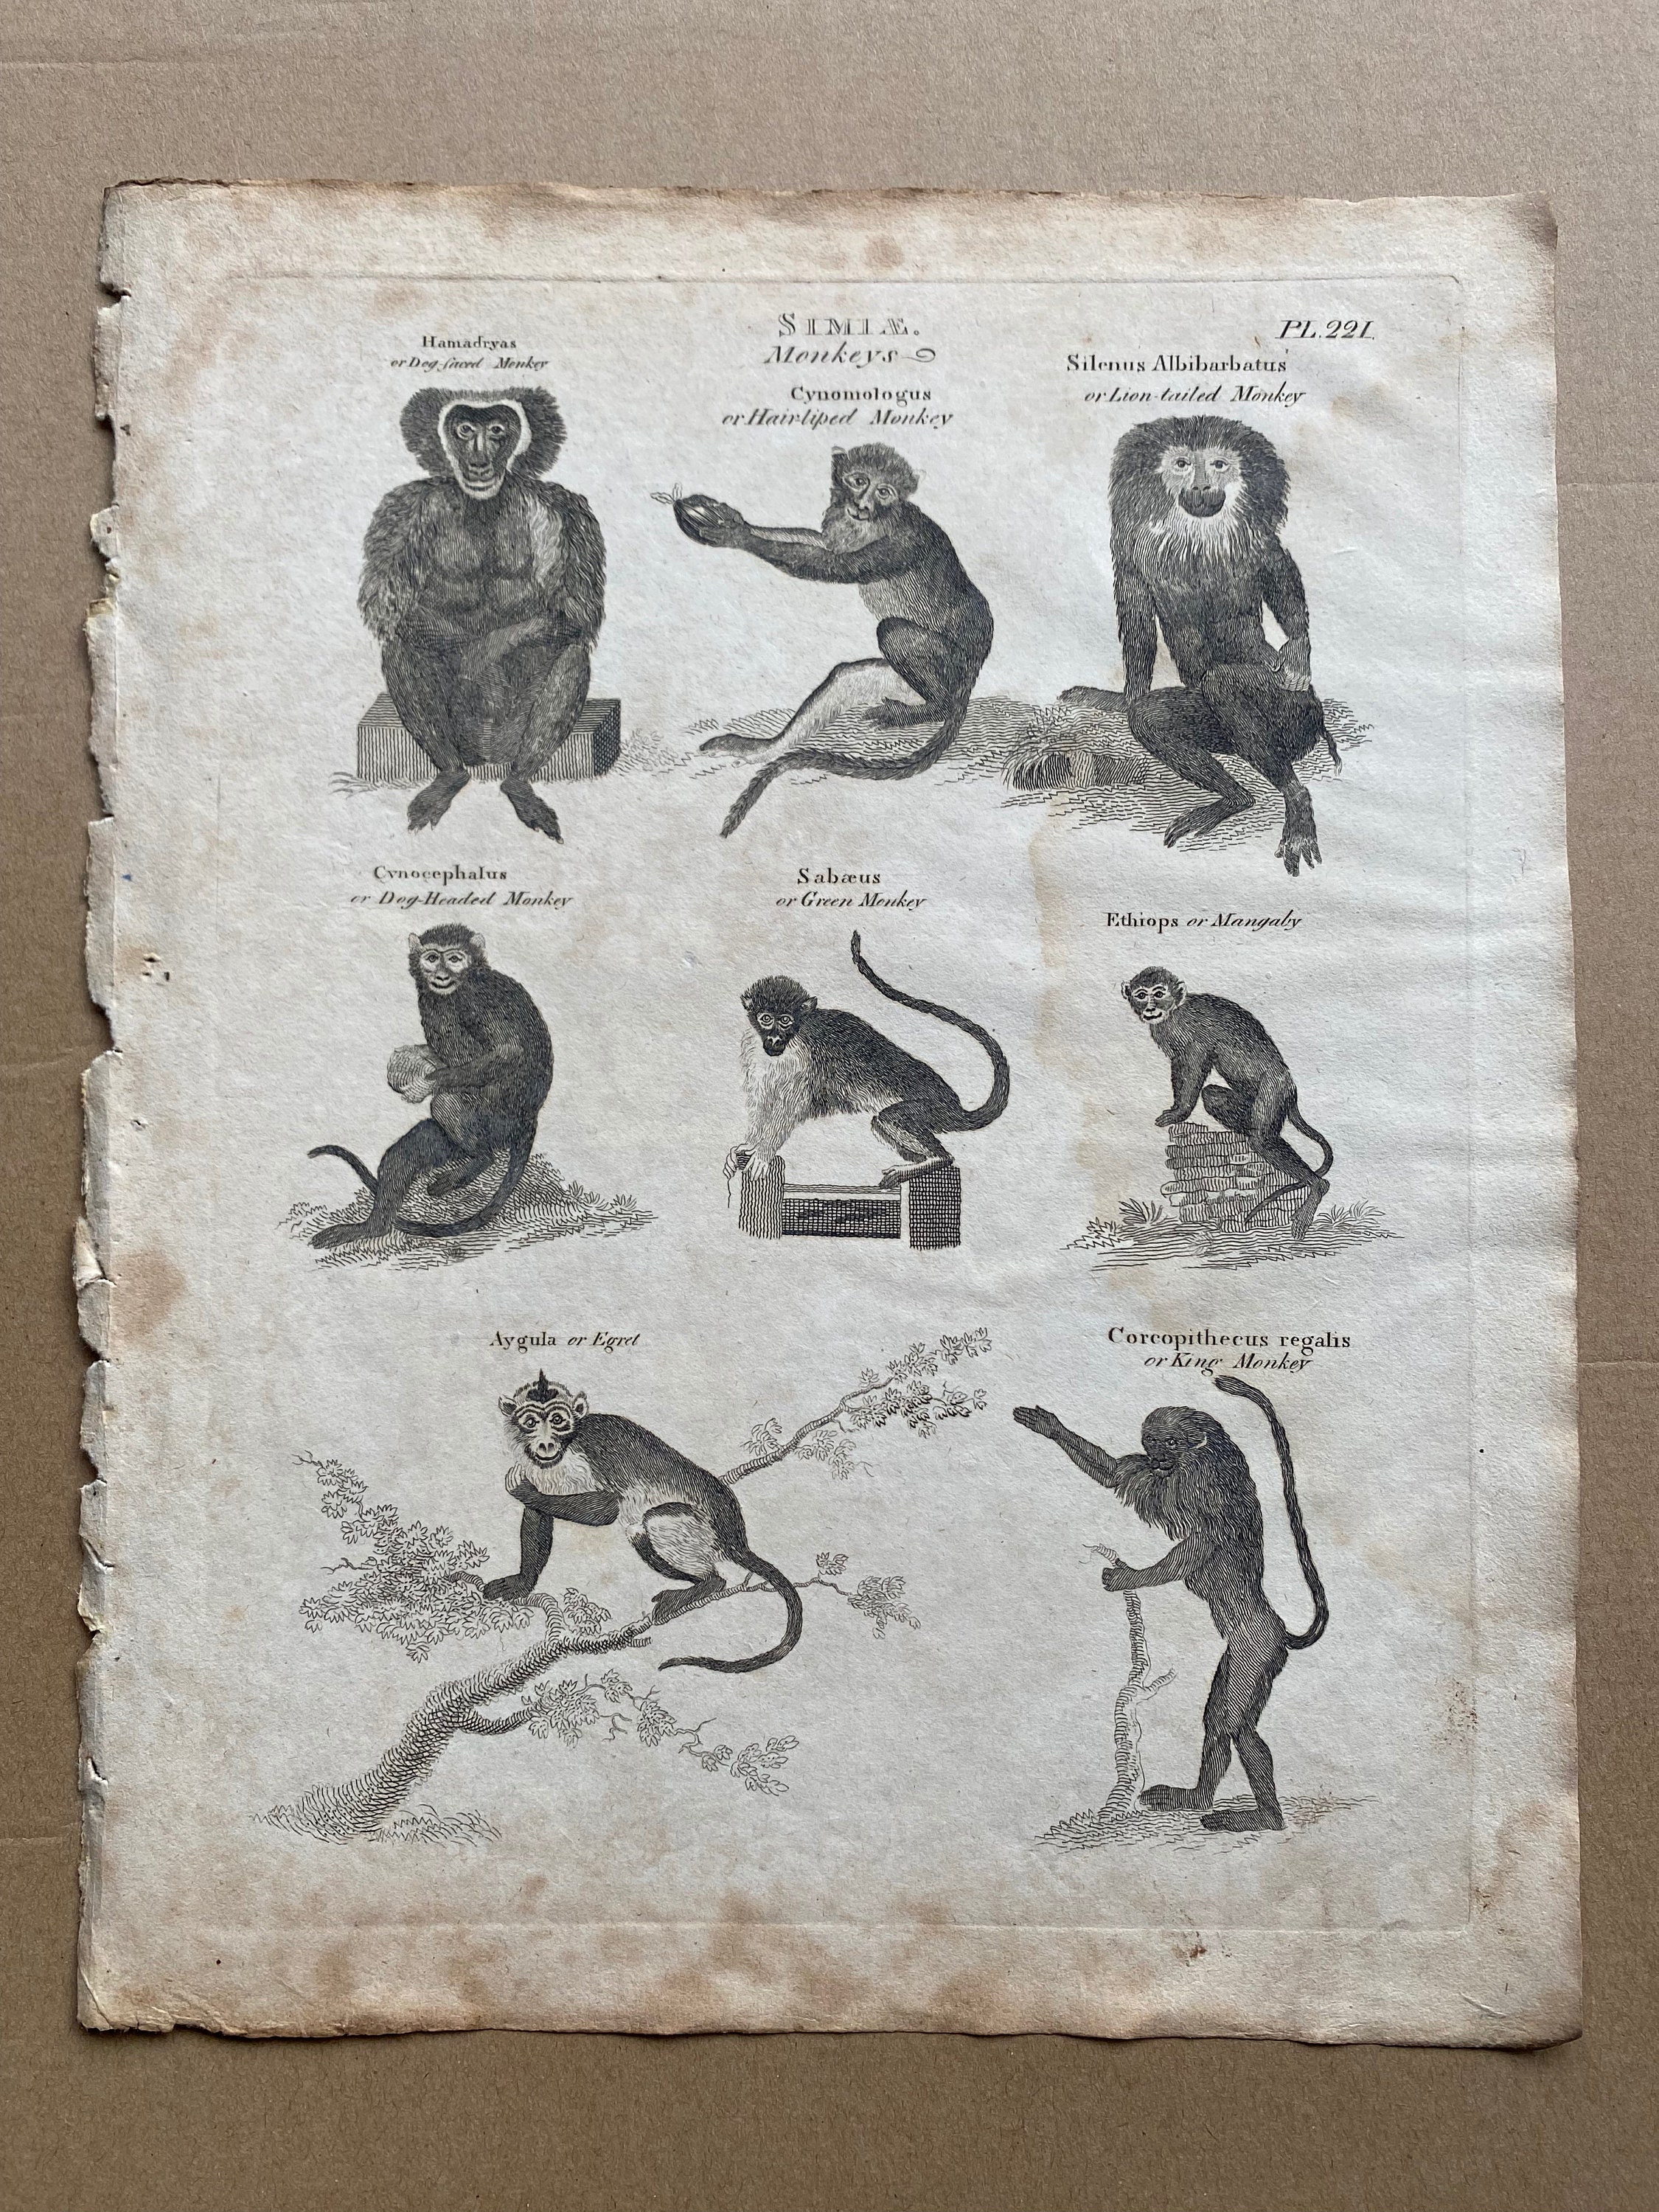 SIMIÆ.
Monkeys
PL. 221.
Hamadryas
or Dog-faced Monkey
Cynomologus
or Hairliped Monkey
Silenus Albibarbatus
or Lion-tailed Monkey
Cynocephalus
or Dog-Headed Monkey
Sabæus
or Green Monkey
Ethiops or Mangaby
Aygula or Egret
Corcopithecus regalis
or King Monkey